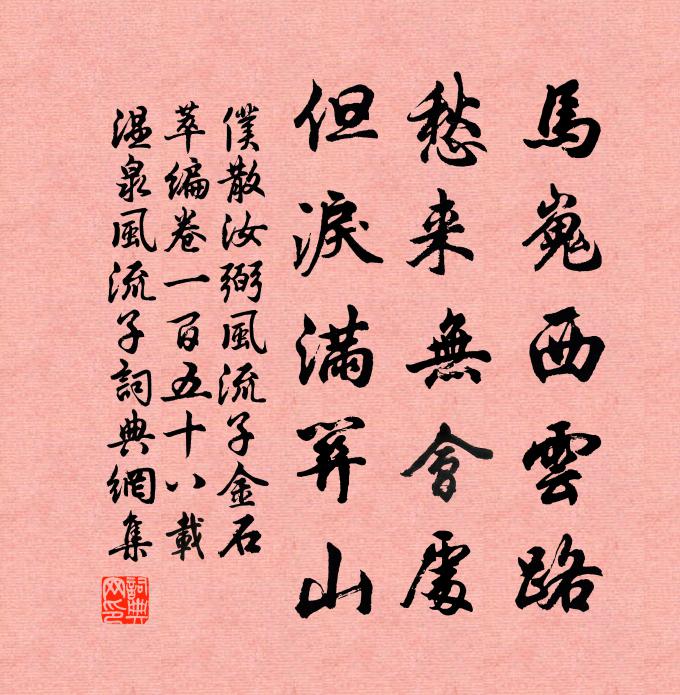 馬嵬西雲路
愁来無會處
但淚滿關山
僕散汝弼風流子金石
萃編卷一百五十八載
温泉風流子詞典網集
詞典
网印